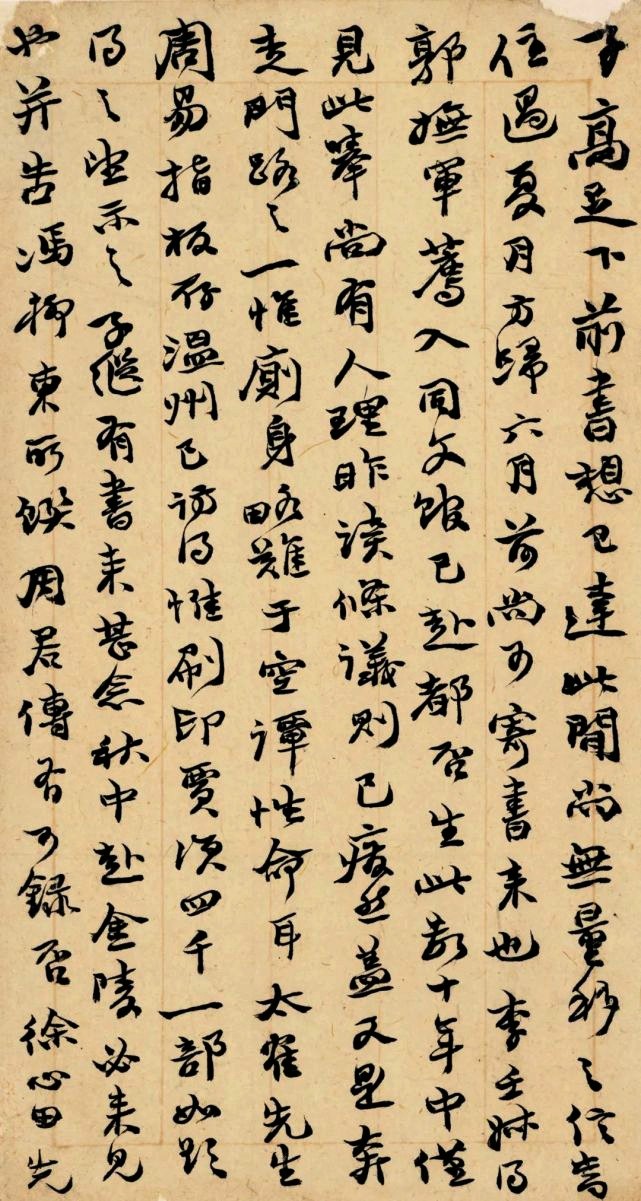 子高足下前書想已達此間尚無量移之信當
住過夏月方歸六月前尚可寄書來也李壬叔得
郭撫軍薦入同文館已赴都否生此數十年中僅
見此舉尚有人理昨讀條議則已廢然蓋又是奔
走門路之一惟廁身略難于空譚性命耳太雀先生
周易指板存温州已訪得惟刷印賈須四千一部如欲
得之望示之子繼有書来甚念秋中赴金陵必来見
也并告馮柳東所饌周君傳有可録否徐心田先